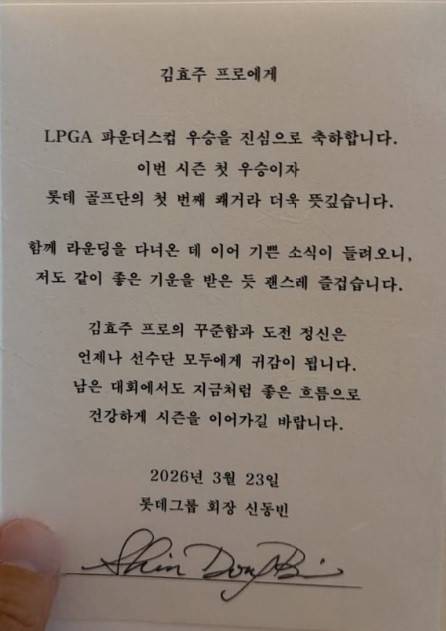 김효주 프로에게
LPGA 파운더스컵 우승을 진심으로 축하합니다.
이번 시즌 첫 우승이자
롯데 골프단의 첫 번째 쾌거라 더욱 뜻깊습니다.
함께 라운딩을 다녀온 데 이어 기쁜 소식이 들려오니,
저도 같이 좋은 기운을 받은 듯 괜스레 즐겁습니다.
김효주 프로의 꾸준함과 도전 정신은
언제나 선수단 모두에게 귀감이 됩니다.
남은 대회에서도 지금처럼 좋은 흐름으로
건강하게 시즌을 이어가길 바랍니다.
2026년 3월 23일
롯데그룹 회장 신동빈
Shin Dong Bin